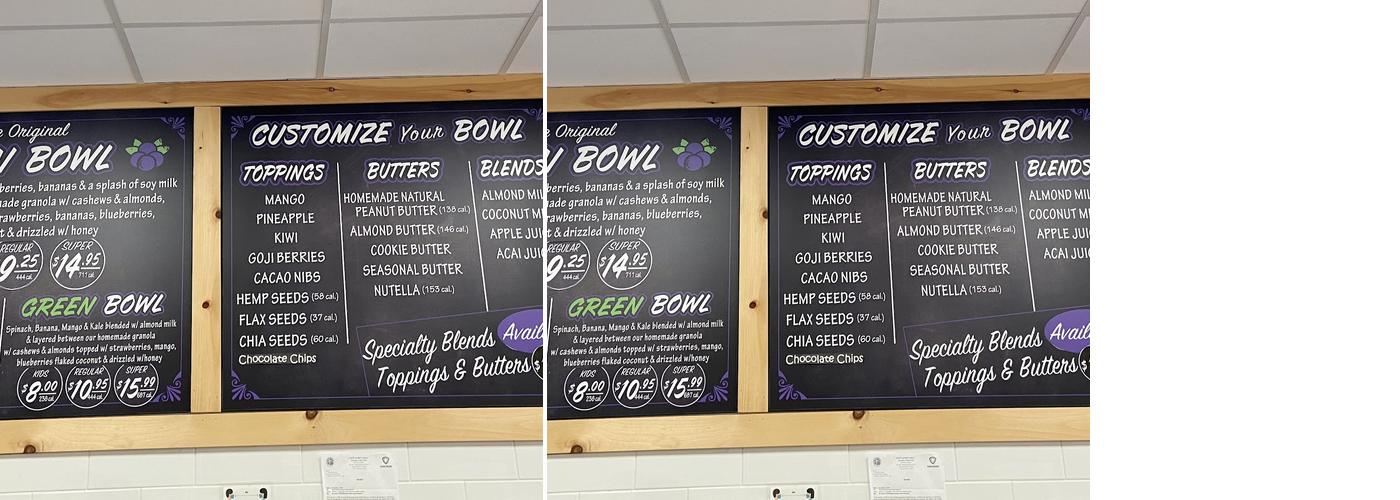 e Original
BOWL
berries, bananas & a splash of soy milk
ade granola w/ cashews & almonds,
rawberries, bananas, blueberries,
t & drizzled w/ honey
REGULAR
9.25
444 cal.
SUPER
$14.95
711 cal.
GREEN BOWL
Spinach, Banana, Mango & Kale blended w/ almond milk
& layered between our homemade granola
w/ cashews & almonds topped w/ strawberries, mango,
blueberries flaked coconut & drizzled w/honey
KIDS
$8.00
238 cal.
REGULAR
$10.95
444 cal.
SUPER
$15.99
687 cal.
CUSTOMIZE Your BOWL
TOPPINGS
MANGO
PINEAPPLE
KIWI
GOJI BERRIES
CACAO NIBS
HEMP SEEDS (58 cal.)
FLAX SEEDS (37 cal.)
CHIA SEEDS (60 cal.)
Chocolate Chips
BUTTERS
HOMEMADE NATURAL
PEANUT BUTTER (138 cal.)
ALMOND BUTTER (146 cal.)
COOKIE BUTTER
SEASONAL BUTTER
NUTELLA (153 cal.)
BLENDS
ALMOND MIL
COCONUT M
APPLE JUIC
ACAI JUIC
Specialty Blends Avail
Toppings & Butters
e Original
BOWL
berries, bananas & a splash of soy milk
ade granola w/ cashews & almonds,
rawberries, bananas, blueberries,
t & drizzled w/ honey
REGULAR
9.25
444 cal.
SUPER
$14.95
711 cal.
GREEN BOWL
Spinach, Banana, Mango & Kale blended w/ almond milk
& layered between our homemade granola
w/ cashews & almonds topped w/ strawberries, mango,
blueberries flaked coconut & drizzled w/honey
KIDS
$8.00
238 cal.
REGULAR
$10.95
444 cal.
SUPER
$15.99
687 cal.
CUSTOMIZE Your BOWL
TOPPINGS
MANGO
PINEAPPLE
KIWI
GOJI BERRIES
CACAO NIBS
HEMP SEEDS (58 cal.)
FLAX SEEDS (37 cal.)
CHIA SEEDS (60 cal.)
Chocolate Chips
BUTTERS
HOMEMADE NATURAL
PEANUT BUTTER (138 cal.)
ALMOND BUTTER (146 cal.)
COOKIE BUTTER
SEASONAL BUTTER
NUTELLA (153 cal.)
BLENDS
ALMOND MIL
COCONUT M
APPLE JUIC
ACAI JUIC
Specialty Blends Avail
Toppings & Butters